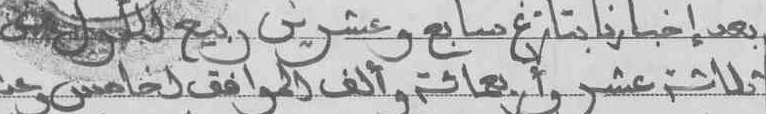 بعد إخبارنا بتاريخ سابع وعشرين ربيع الأول من
ثلاثة عشر وأربعمائة وألف الموافق لخامس وعش